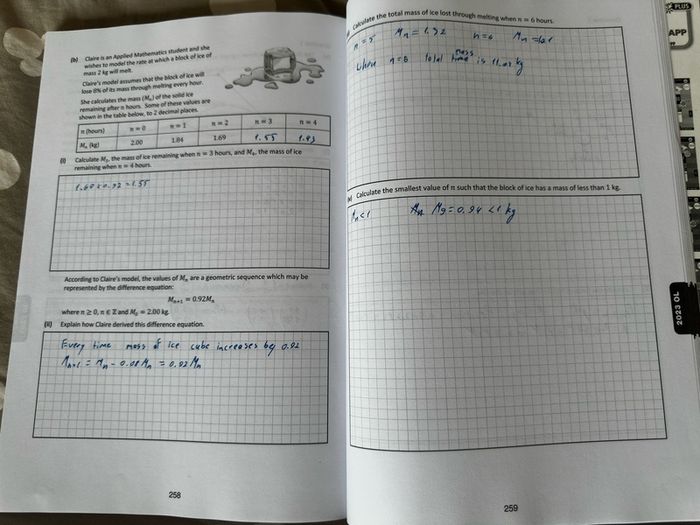 (b) Claire is an Applied Mathematics student and she
wishes to model the rate at which a block of ice of
mass 2 kg will melt.
Claire's model assumes that the block of ice will
lose 8% of its mass through melting every hour.
She calculates the mass (Mₙ) of the solid ice
remaining after n hours. Some of these values are
shown in the table below, to 2 decimal places.
n (hours) n = 0 n = 1 n = 2 n = 3 n = 4
Mₙ (kg) 2.00 1.84 1.69 1.55 1.43
(i) Calculate M₃, the mass of ice remaining when n = 3 hours, and M₄, the mass of ice
remaining when n = 4 hours.
1.69 x 0.92 = 1.55
According to Claire's model, the values of Mₙ are a geometric sequence which may be
represented by the difference equation:
Mₙ₊₁ = 0.92Mₙ
where n ≥ 0, n ∈ ℤ and M₀ = 2.00 kg.
(ii) Explain how Claire derived this difference equation.
Every time mass of ice cube increases by 0.92
Mₙ₊₁ = Mₙ - 0.08Mₙ = 0.92 Mₙ
258
Calculate the total mass of ice lost through melting when n = 6 hours.
n = 5 Mₙ = 1.32 n = 6 Mₙ =
mass
when total time is kg
Calculate the smallest value of n such that the block of ice has a mass of less than 1 kg.
Mₙ < 1 M9 = 0.94 < 1 kg
259
2023 OL
PLUS
APP